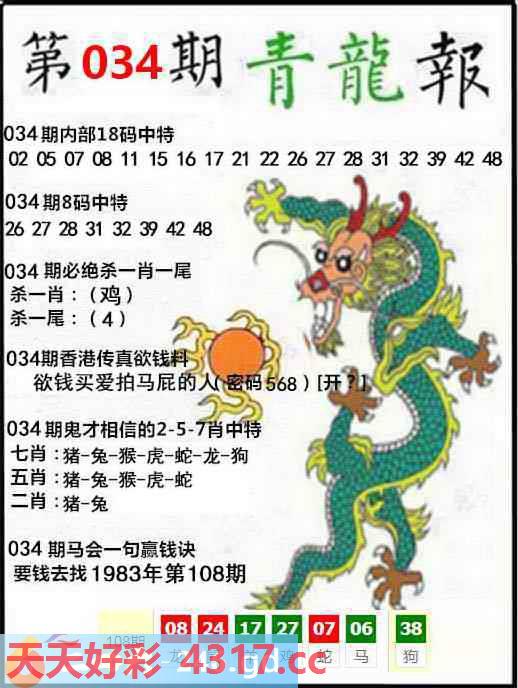 第034期青龍報
034期内部18码中特
02 05 07 08 11 15 16 17 21 22 26 27 28 31 32 39 42 48
034期8码中特
26 27 28 31 32 39 42 48
034期必绝杀一肖一尾
杀一肖：(鸡)
杀一尾：(4)
034期香港传真欲钱料
欲钱买爱拍马屁的人(密码568)[开？]
034期鬼才相信的2-5-7肖中特
七肖：猪-兔-猴-虎-蛇-龙-狗
五肖：猪-兔-猴-虎-蛇
二肖：猪-兔
034期马会一句赢钱诀
要钱去找1983年第108期
108期 08 24 17 27 07 06 38
龙 鸡 蛇 马 狗
天天好彩 4317.cc